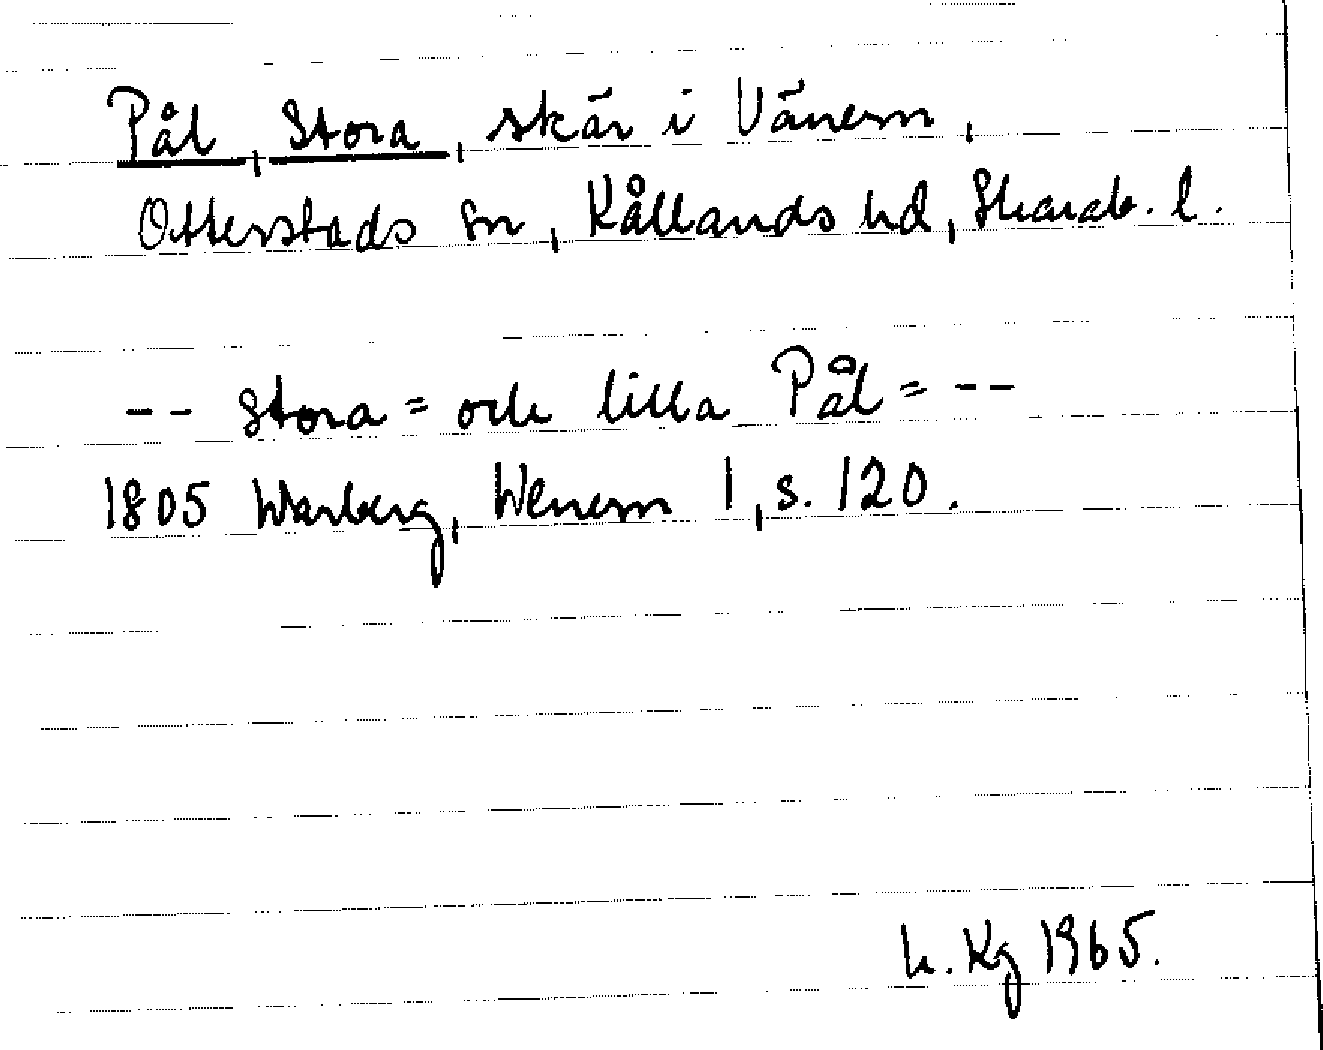 Pål, Stora, skär i Vänern,
Otterstads sn, Kållands hd, Skarab. l.
-- Stora= och lilla Pål= --
1805 Warberg, Wenern 1, s. 120.
h. Kg 1965.